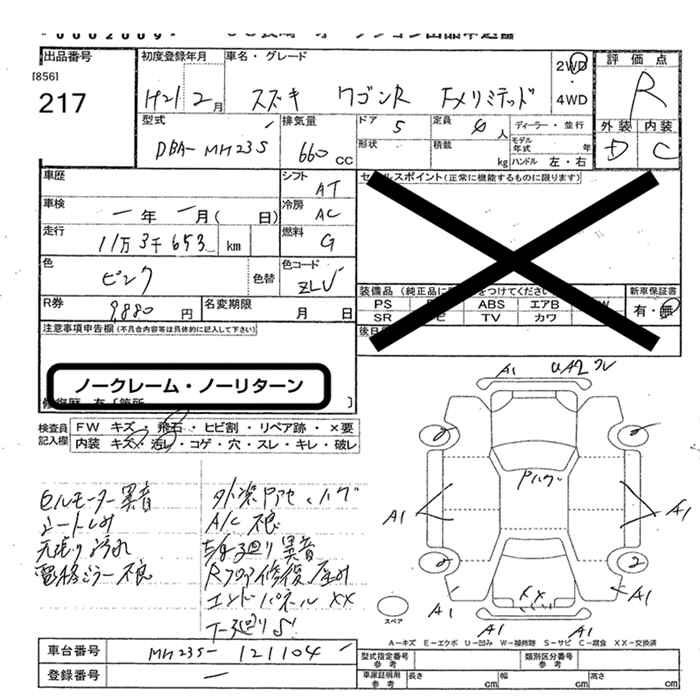 出品番号
[856]
217
初度登録年月
H21 2月
車名・グレード
スズキ ワゴンR FXリミテッド
2WD
4WD
評価点
R
外装 内装
D C
型式
DBA-MH23S
排気量
660 CC
ドア
5
形状
定員
4人
積載
kg
ディーラー・並行
モデル年式
年
ハンドル 左・右
車歴
シフト
AT
車検
年 月( 日)
冷房
AC
走行
11万3千653 km
燃料
G
色
ピンク
色替
色コード
ZLV
R券
9,880円
名変期限
月 日
注意事項申告欄(不具合内容等は具体的に記入して下さい)
ノークレーム・ノーリターン
セールスポイント(正常に機能するものに限ります)
装備品
PS ABS エアB
SR TV カワ
新車保証書
有・無
検査員記入欄
FW キズ・飛石・ヒビ割・リペア跡・×要
内装 キズ・汚レ・コゲ・穴・スレ・キレ・破レ
セルモーター異音
シートしみ
天張り汚れ
電格ミラー不良
A/C 不良
異音
Rフロア修復
エンドパネル XX
下廻りS
A1
UA2
A1
A1
2
2
A1
A1
A1
A1
XX
スペア
A-キズ E-エクボ U-凹み W-補修跡 S-サビ C-腐食 XX-交換済
車台番号
MH23S-121104
登録番号
型式指定番号
参考
類別区分番号
参考
車庫証明用
参考
長さ cm
幅 cm
高さ cm